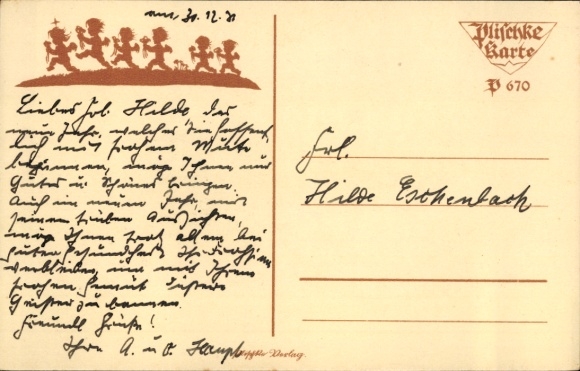 am 30.12.31
Liebes Frl. Hilde, das
neue Jahr, welches Sie hoffent-
lich mit frohem Mute
beginnen, mög Ihnen nur
Gutes u. Schönes bringen.
Auch im neuen Jahr, mit
seinen trüben Aussichten,
mög Ihnen trotz allem bei
guter Gesundheit Ihr Frohsinn
verbleiben, um mit Ihrem
frohen Gemüt
Geister zu bannen.
Freundl Grüße!
Ihre A. u. O. Haupt
Plischke
Karte
P 670
Frl.
Hilde Eschenbach
Plischke Verlag